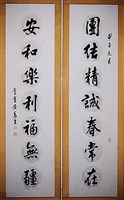 團結精誠春常在
安和樂利福無疆